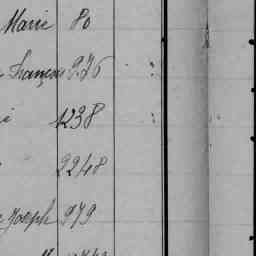 Marie 80
François 976
1238
2248
Joseph 979